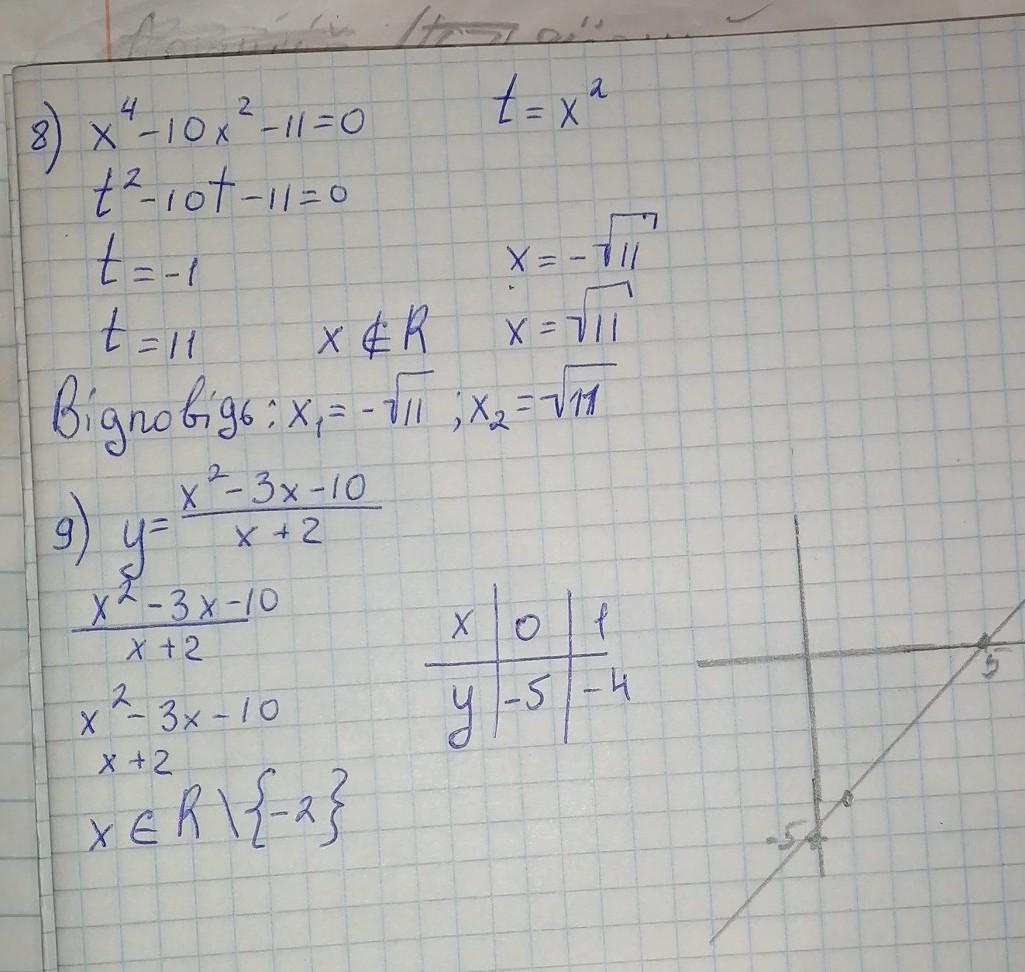 8) x⁴-10x²-11=0 t=x²
t²-10t-11=0
t=-1 x=-√11
t=11 x∉R x=√11
Відповідь: x₁=-√11 ; x₂=√11
9) y=(x²-3x-10)/(x+2)
(x²-3x-10)/(x+2)
x | 0 | 1
y | -5 | -4
x²-3x-10
x+2
x∈R\{-2}
5
-5